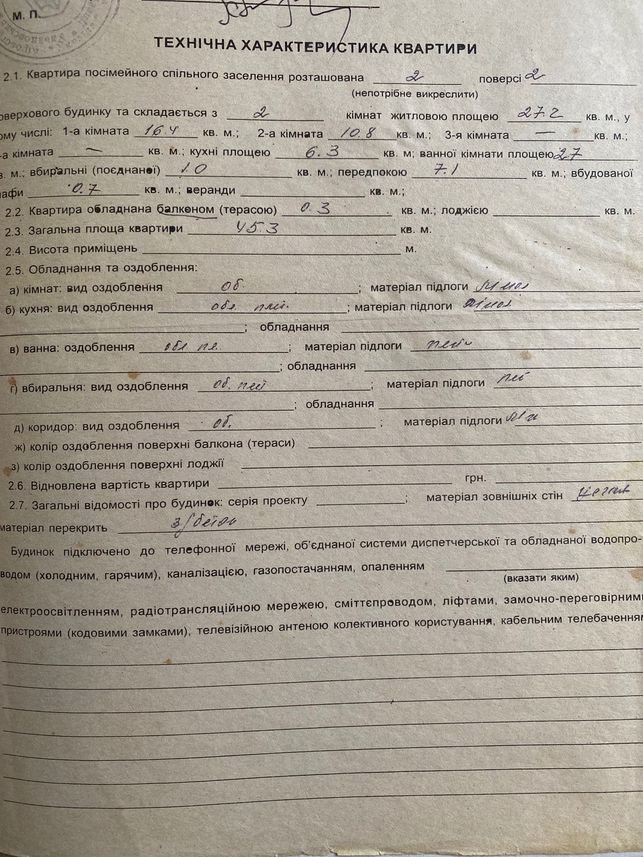 М. П.
ТЕХНІЧНА ХАРАКТЕРИСТИКА КВАРТИРИ
2.1. Квартира посімейного спільного заселення розташована 2 поверсі 2
(непотрібне викреслити)
оверхового будинку та складається з 2 кімнат житловою площею 27.2 кв. м., у
ому числі: 1-а кімната 16.4 кв. м.; 2-а кімната 10.8 кв. м.; 3-я кімната — кв. м.;
-а кімната — кв. м.; кухні площею 6.3 кв. м; ванної кімнати площею 2.7
в. м.; вбиральні (поєднаної) 1.0 кв. м.; передпокою 7.1 кв. м.; вбудованої
афи 0.7 кв. м.; веранди кв. м.;
2.2. Квартира обладнана балконом (терасою) 0.3 кв. м.; лоджією кв. м.
2.3. Загальна площа квартири 45.3 кв. м.
2.4. Висота приміщень м.
2.5. Обладнання та оздоблення:
а) кімнат: вид оздоблення об. ; матеріал підлоги
б) кухня: вид оздоблення ; матеріал підлоги
; обладнання
в) ванна: оздоблення ; матеріал підлоги
; обладнання
г) вбиральня: вид оздоблення ; матеріал підлоги
; обладнання
д) коридор: вид оздоблення об. ; матеріал підлоги
ж) колір оздоблення поверхні балкона (тераси)
з) колір оздоблення поверхні лоджії
2.6. Відновлена вартість квартири грн.
2.7. Загальні відомості про будинок: серія проекту ; матеріал зовнішніх стін
матеріал перекрить з/бетон
Будинок підключено до телефонної мережі, об'єднаної системи диспетчерської та обладнаної водопро-
водом (холодним, гарячим), каналізацією, газопостачанням, опаленням
(вказати яким)
електроосвітленням, радіотрансляційною мережею, сміттєпроводом, ліфтами, замочно-переговірними
пристроями (кодовими замками), телевізійною антеною колективного користування, кабельним телебаченням